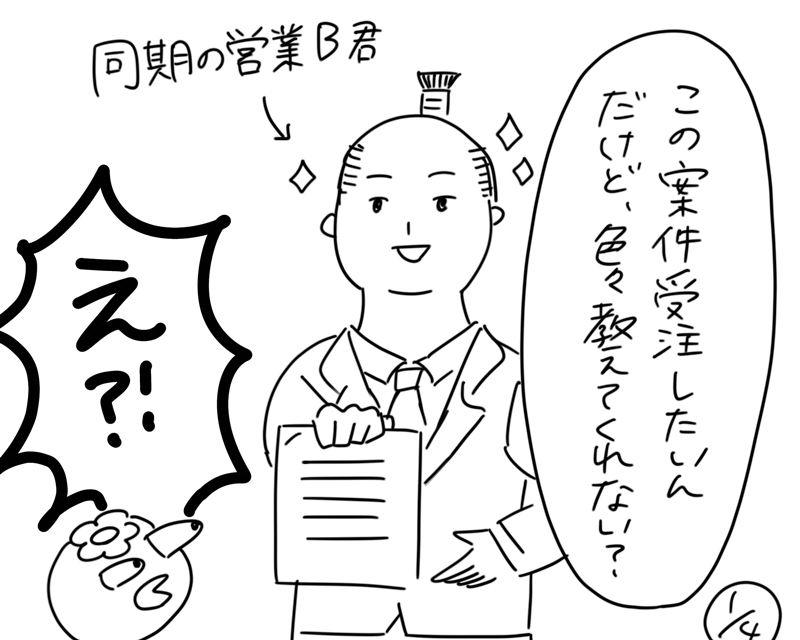 同期の営業B君
この案件受注したいん
だけど、色々教えてくれない?
え?!
1/4